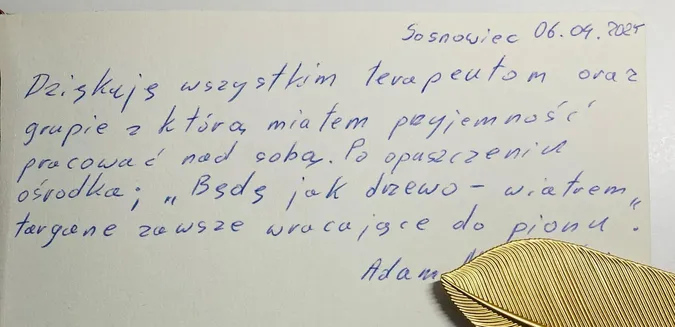 Sosnowiec 06.04.2025
Dziękuję wszystkim terapeutom oraz
grupie z którą miałem przyjemność
pracować nad sobą. Po opuszczeniu
ośrodka; „Będę jak drzewo - wiatrem
targane zawsze wracające do pionu".
Adam